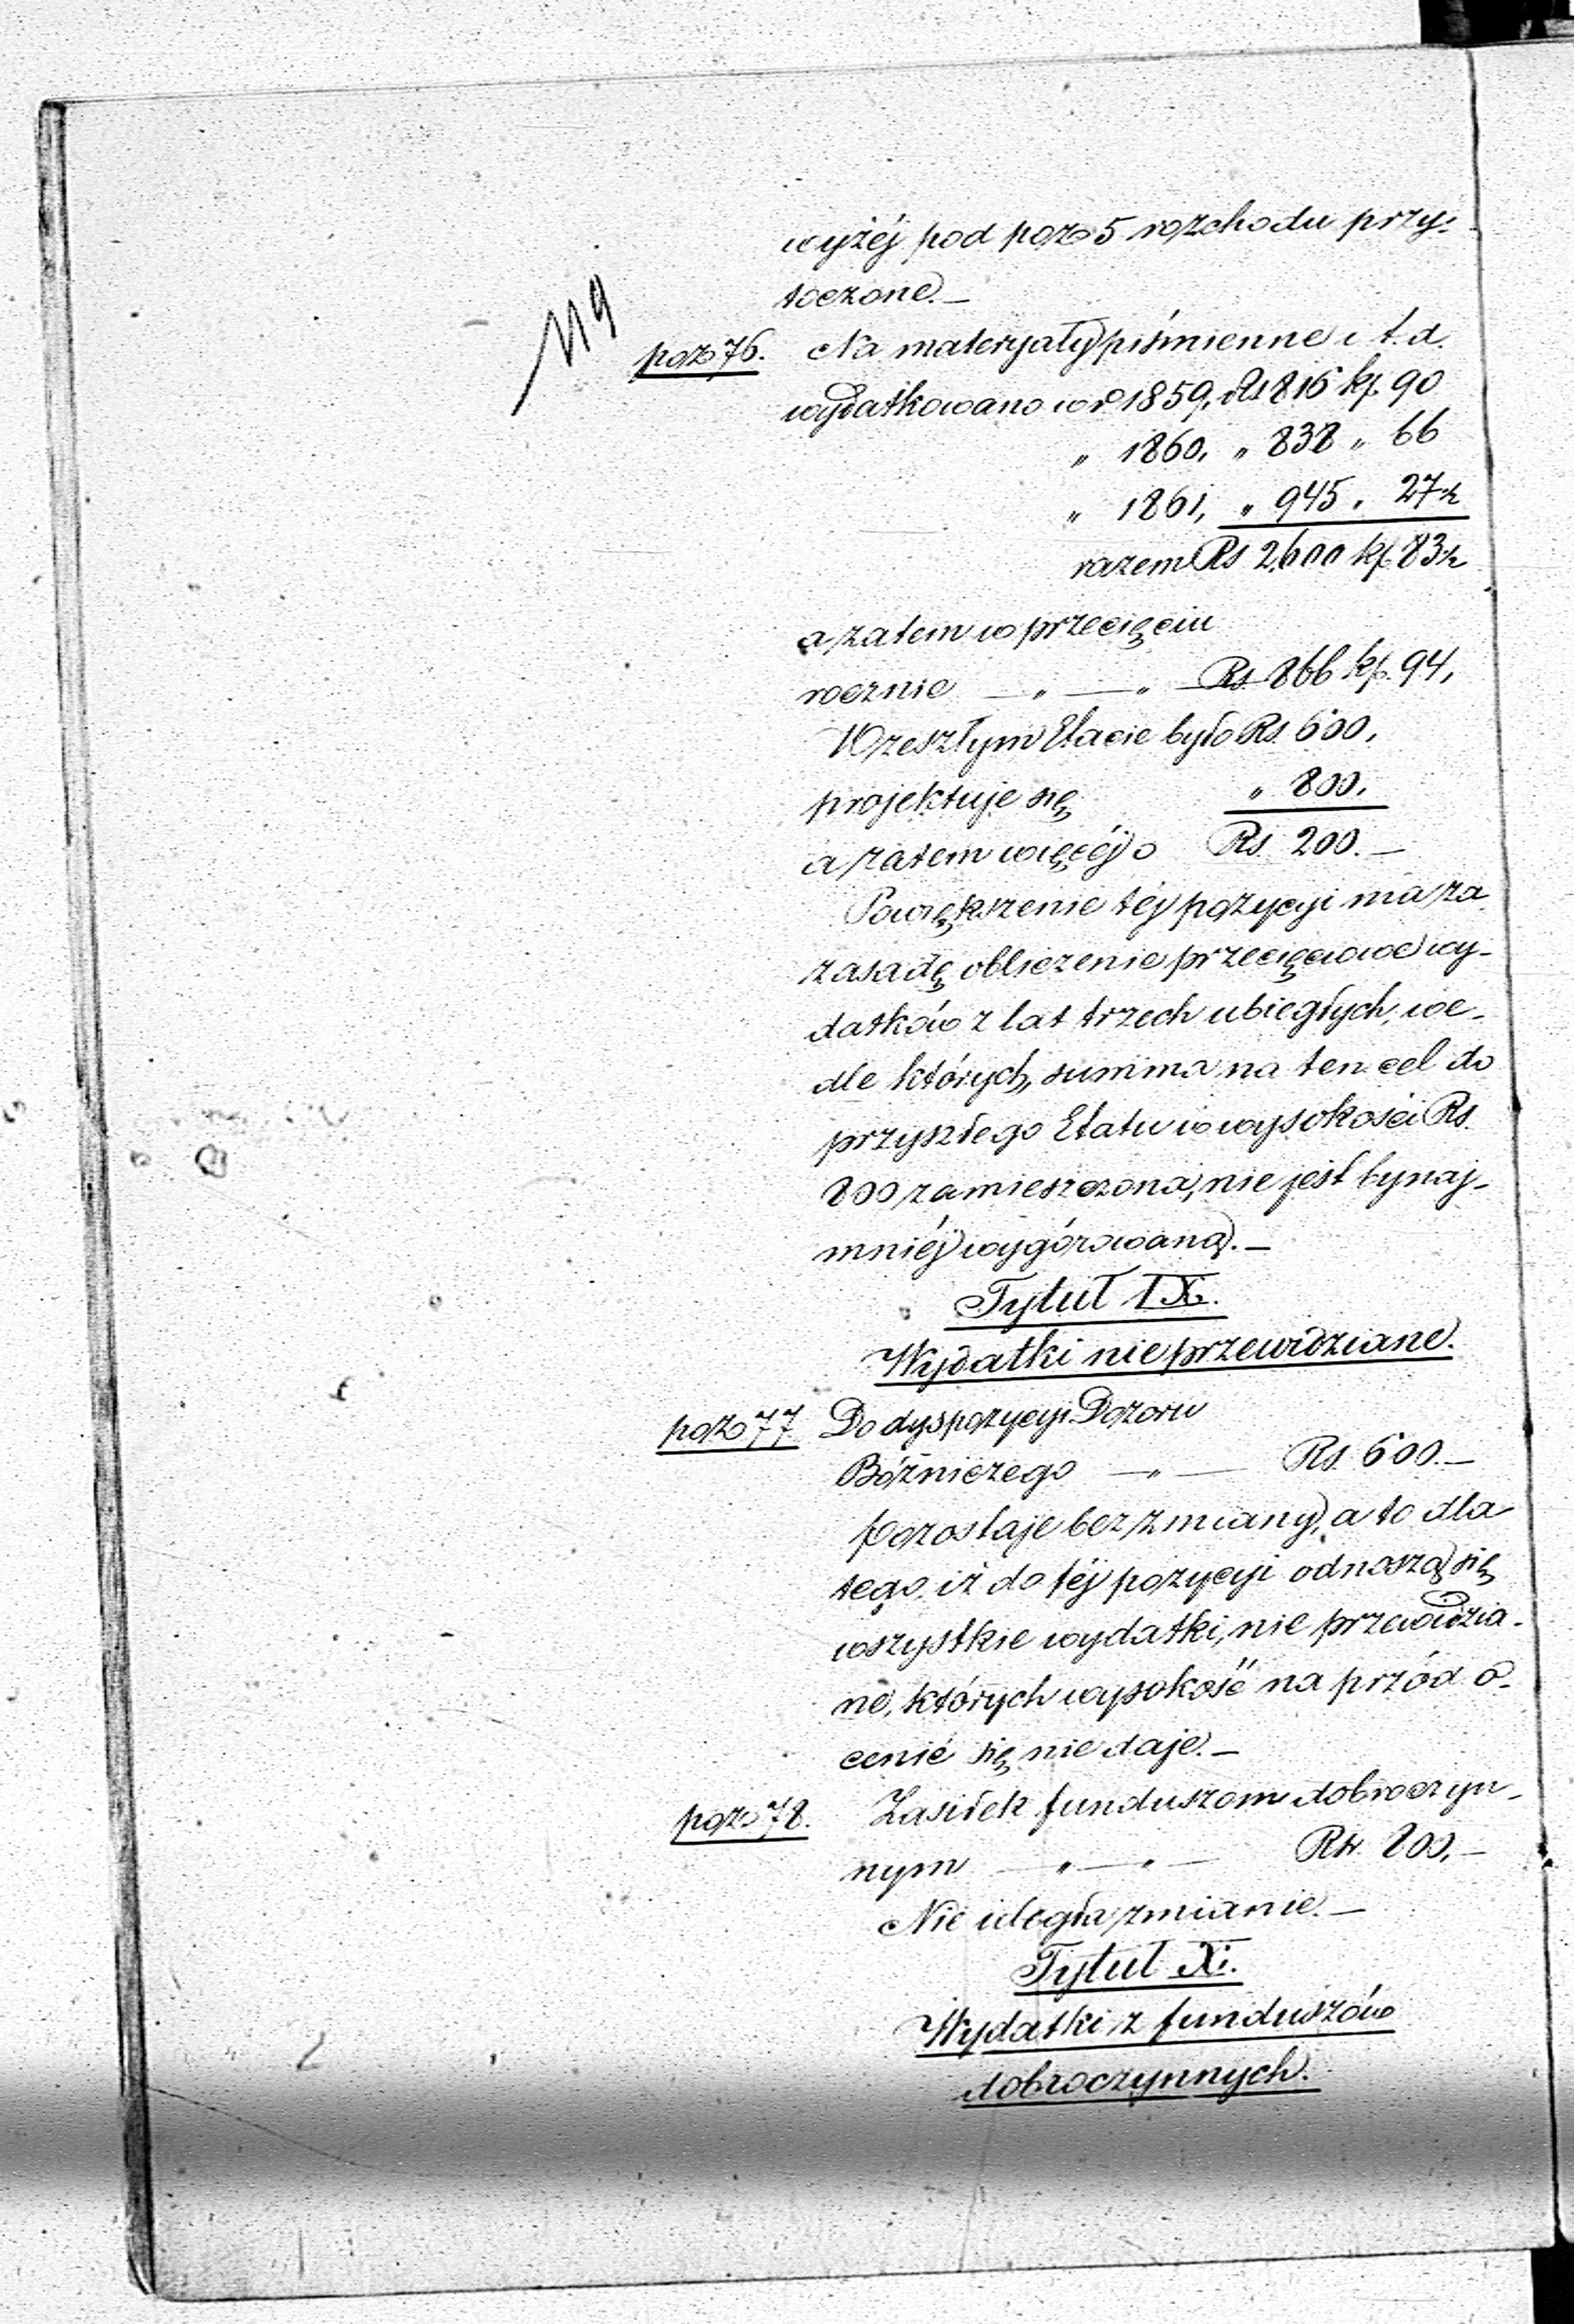 119
wyżéj pod poz 5 rozchodu przy:
toczone.—
poz 76. Na materyały piśmienne i t. d.
wydatkowano w r. 1859, Rs 816 kp. 90
„ 1860, „ 838 „ 66
„ 1861, „ 945 „ 27½
razem Rs 2,600 kp. 83½
a zatem w przecięciu
rocznie — „ — „ — Rs. 866 kp. 94,
W zeszłym Etacie było Rs. 600,
projektuje się „ 800,
a zatem więcéj o Rs. 200.—
Powiększenie téj pozycyi ma za
zasadę obliczenie przecięciowe wy-
datków z lat trzech ubiegłych, we-
dle których, summa na ten cel do
przyszłego Etatu w wysokości Rs.
800 zamieszczona, nie jest bynaj-
mniéj wygórowaną.—
Tytuł IX.
Wydatki nie przewidziane.
poz 77. Do dyspozycyi Dozoru
Bóżniczego — „ — Rs. 600.—
Pozostaje bez zmiany, a to dla
tego, iż do téj pozycyi odnoszą się
wszystkie wydatki, nie przewidzia-
ne, których wysokość na przód o-
cenić się nie daje.—
poz 78. Zasiłek funduszom dobroczyn-
nym — „ — „ — Rs. 800,—
Nie uległa zmianie.—
Tytuł X.
Wydatki z funduszów
dobroczynnych.